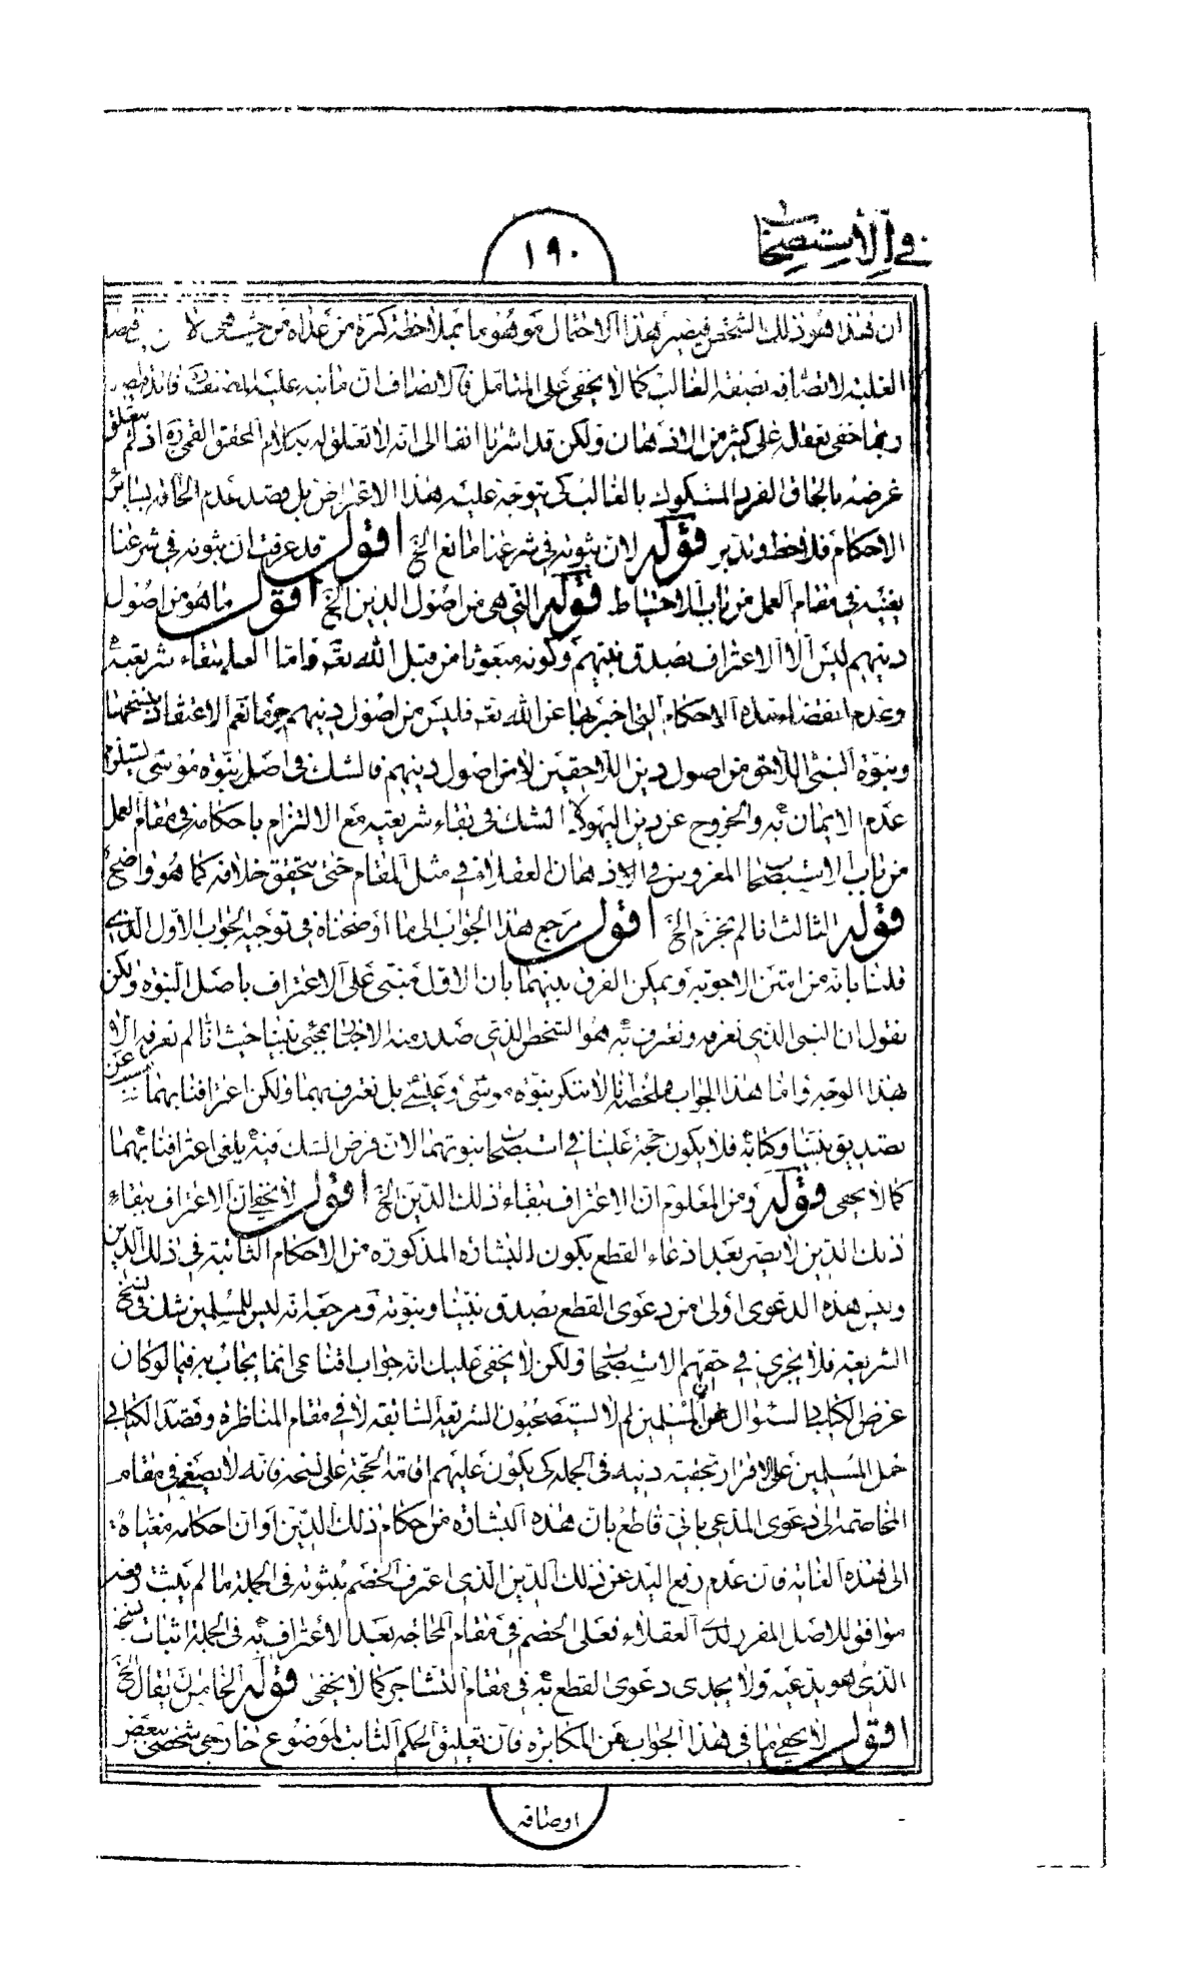 في الاستصحاب
١٩٠
ان هذا هو ذلك الشخص فيضير هذا الاحتمال موهوما بملاحظة كثرة من عداه من حيث هي لا
الغلبة لاتصافه بصفة الغالب كما لا يخفى على المتامل فالانصاف ان ما نبه عليه المصنف فائدة
ربما خفى نفعها على كثير من الاذهان ولكن قد اشرنا انفا الى انه لا تعلق له بكلام المحقق القمى ره اذ لم يتعلق
غرضه بالحاق الفرد المشكوك بالغالب كى يتوجه عليه هذا الاعتراض بل قصد عدم الحاقه بسائر
الاحكام فلاحظ وتدبر قوله لان ثبوته في شرعنا مانع الخ اقول قد عرفت ان ثبوته في شرعنا
يغنيه في مقام العمل من باب الاحتياط قوله التي هي من اصول الدين الخ اقول ما هو من اصول
دينهم ليس الا الاعتراف بصدق نبيهم وكونه مبعوثا من قبل الله تعه واما العلم ببقاء شريعته
وعدم انقضاء مدة الاحكام التي اخبر بها عن الله تعه فليس من اصول دينهم جزما نعم الاعتقاد بنسخها
وبنوة النبي اللاحق من اصول دين اللاحقين لا من اصول دينهم فالشك في اصل نبوة موسى يستلزم
عدم الايمان به والخروج عن دين اليهود لا الشك في بقاء شريعته مع الالتزام باحكامه في مقام العمل
من باب الاستصحاب المغروس في الاذهان العقلاء في مثل المقام حتى يتحقق خلافه كما هو واضح
قوله الثالث انا لم نجزم الخ اقول مرجع هذا الجواب الى ما اوضحناه في توجيه الجواب الاول الذي
قلنا بانه من امتن الاجوبة ويمكن الفرق بينهما بان الاول مبنى على الاعتراف باصل النبوة ولكن
نقول ان النبى الذي نعرفه ونعترف به هو الشخص الذي صدر منه الاخبار بمجئ نبينا حيث انا لم نعرفه الا
بهذا الوجه واما هذا الجواب فملخصه انا لا ننكر نبوة موسى وعيسى بل نعترف بهما ولكن اعترافنا بهما مسبب عن
تصديق نبينا وكتابه فلا يكون حجة علينا في استصحاب نبوتهما لان فرض الشك فيه يلغى اعترافنا بهما
كما لا يخفى قوله ومن المعلوم ان الاعتراف ببقاء ذلك الدين الخ اقول لا يخفى ان الاعتراف ببقاء
ذلك الدين لا يضر بعد ادعاء القطع بكون البشارة المذكورة من الاحكام الثابتة في ذلك الدين
وليس هذه الدعوى اولى من دعوى القطع بصدق نبينا ونبوته ومرجعه انه ليس للمسلمين شك في نسخ
الشريعة فلا يجري في حقهم الاستصحاب ولكن لا يخفى عليك انه جواب اقناعى انما يجاب به فيما لو كان
غرض الكتابى السئوال عن المسلمين لم لا يستصحبون الشريعة السابقة لا في مقام المناظرة وقصد الكتابي
حمل المسلمين على الاقرار بحقية دينه في الجملة كى يكون عليهم اقامة الحجة على نسخه فانه لا يصغى في مقام
المخاصمة الى دعوى المدعى بانى قاطع بان هذه البشارة من احكام ذلك الدين او ان احكامه مغياة
الى هذه الغاية فان عدم رفع اليد عن ذلك الدين الذي اعترف الخصم بثبوته في الجملة ما لم يثبت رفعه
موافق للاصل المقرر لدى العقلاء فعلى الخصم في مقام المحاجه بعد الاعتراف به في الجملة اثبات نسخه
الذي هو يدعيه ولا يجدى دعوى القطع به في مقام التشاجر كما لا يخفى قوله الخامس ان يقال الخ
اقول لا يخفى ما في هذا الجواب من المكابرة فان تعليق الحكم الثابت لموضوع خارجى شخصى ببعض
اوصافه